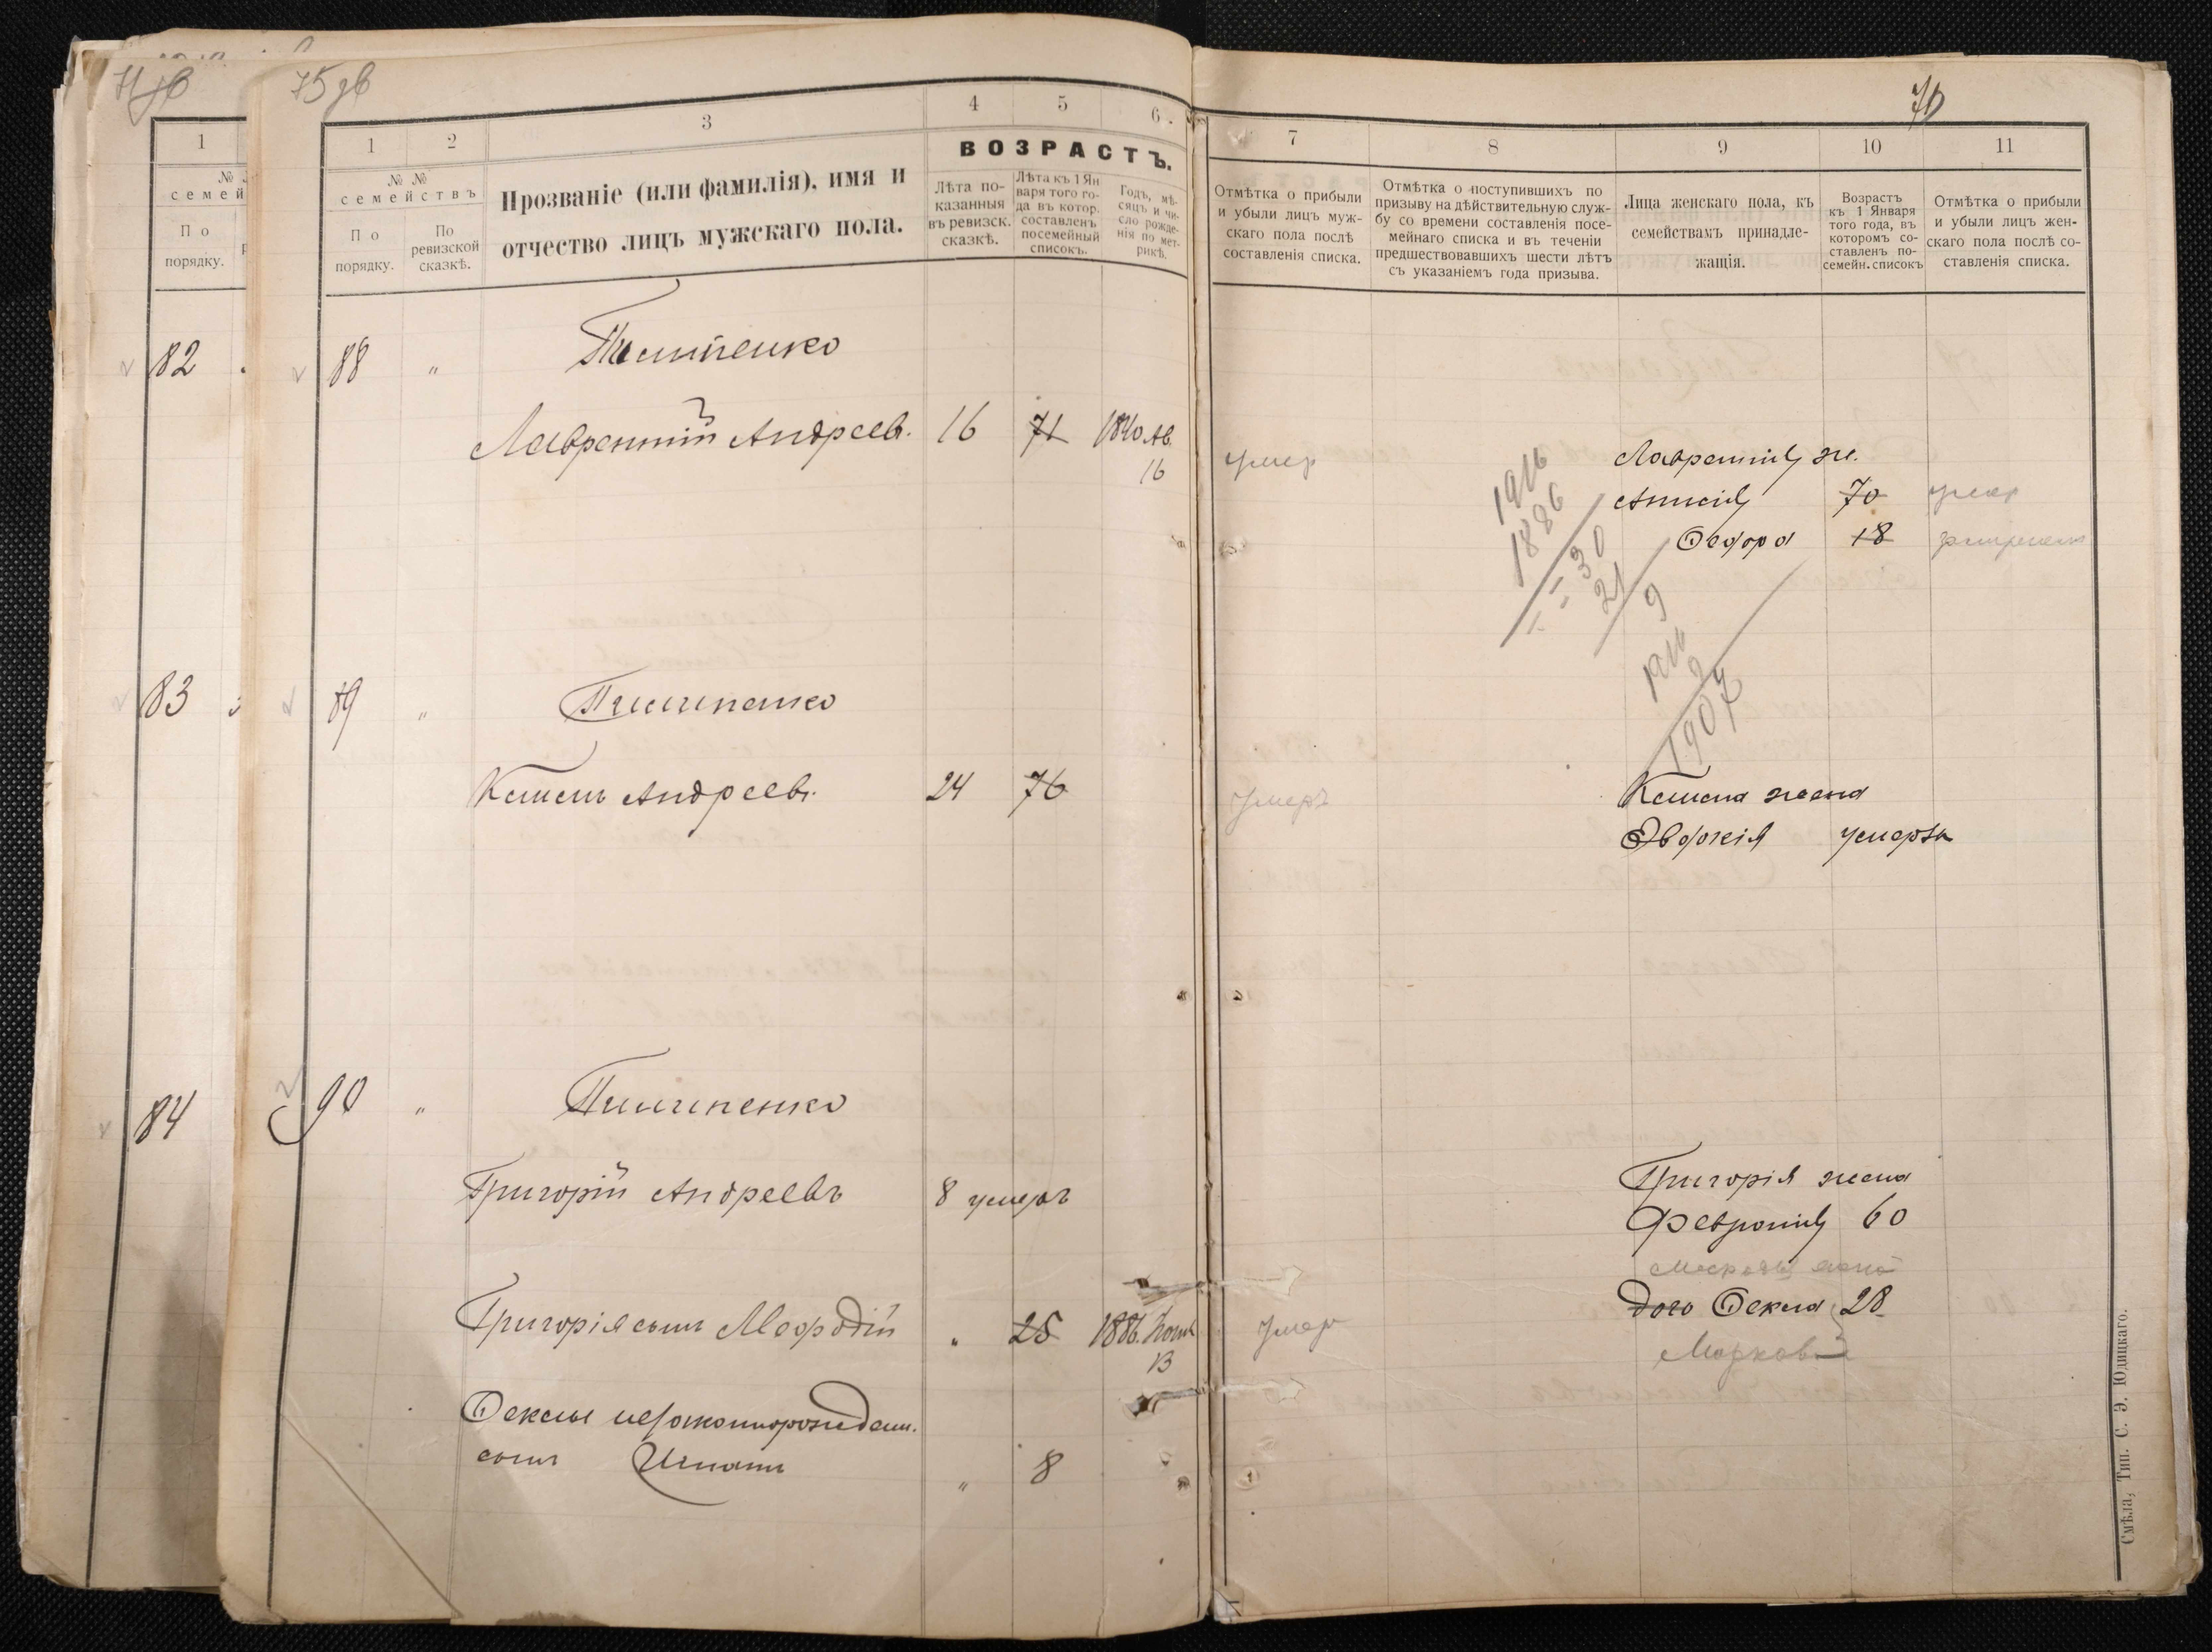 75 дв
76
1
2
3
4
5
6.
ВОЗРАСТЪ.
№ №
семействъ
По
порядку.
По
ревизской
сказкѣ.
Прозваніе (или фамилія), имя и
отчество лицъ мужскаго пола.
Лѣта по-
казанныя
въ ревизск.
сказкѣ.
Лѣта къ 1 Ян
варя того го-
да въ котор.
составленъ
посемейный
списокъ.
Годъ, мѣ-
сяцъ и чи-
сло рожде-
нія по мет-
рикѣ.
7
8
9
10
11
Отмѣтка о прибыли
и убыли лицъ муж-
скаго пола послѣ
составленія списка.
Отмѣтка о поступившихъ по
призыву на дѣйствительную служ-
бу со времени составленія посе-
мейнаго списка и въ теченіи
предшествовавшихъ шести лѣтъ
съ указаніемъ года призыва.
Лица женскаго пола, къ
семействамъ принадле-
жащія.
Возрастъ
къ 1 Января
того года, въ
которомъ со-
ставленъ по-
семейн. списокъ
Отмѣтка о прибыли
и убыли лицъ жен-
скаго пола послѣ со-
ставленія списка.
1
По
порядку.
82
83
84
88 "
Лаврентій Андреев. 16 71 1840 Ав.
16
умер
Лаврентія ж.
Анисія 70 умер
Ѳедора 18
1916
1886
= = 30
21
9
1916
9
1907
89 "
Андреев. 24 76
умеръ
жена
Евдокія умерла
90 "
Григорій Андреевъ 8 умеръ
Григорія жена
Февронія 60
Григорія сынъ 25 1886
13
умер
Ѳекла 28
Ѳеклы незаконнорожден.
сынъ " 8
Смѣла, Тип. С. Э. Юдицкаго.